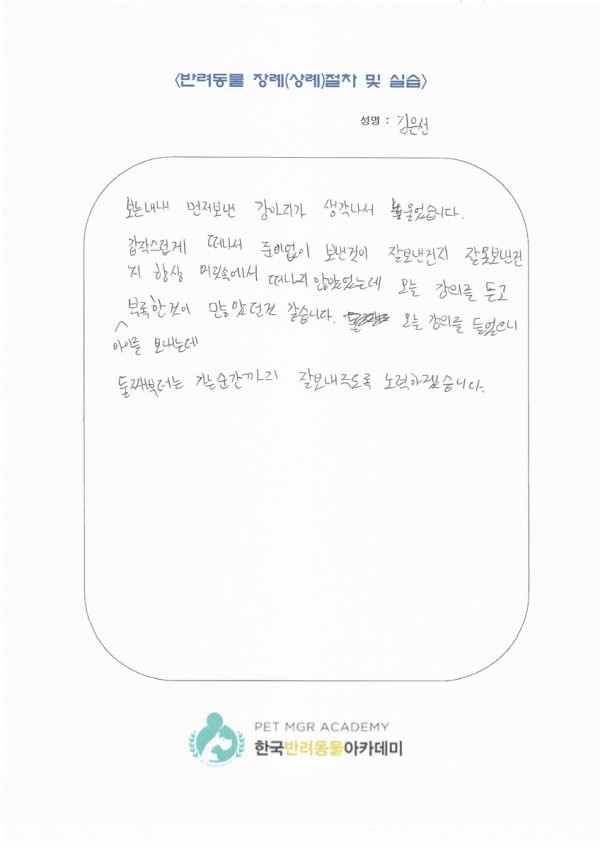 <반려동물 장례(상례)절차 및 실습>
성명 : 김은선
보는내내 먼저보낸 강아리가 생각나서 울었습니다.
갑작스럽게 떠나서 준비없이 보낸것이 잘보낸건지 잘못보낸건
지 항상 머릿속에서 떠나지 않았었는데 오늘 강의를 듣고
부족한것이 많았던것 같습니다. 오늘 강의를 들었으니
아이를 보내는데
둘째부터는 가는순간까지 잘보내주도록 노력하겠습니다.
PET MGR ACADEMY
한국반려동물아카데미